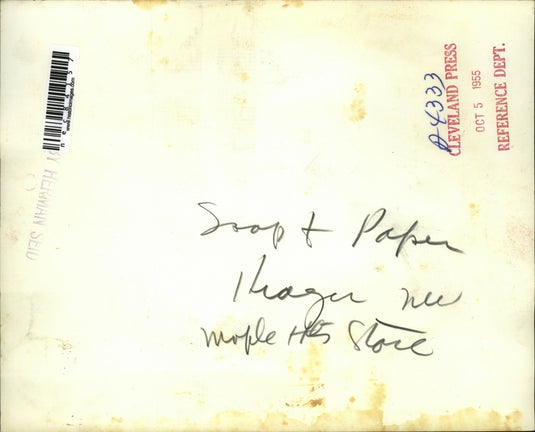 Soap & Paper
Kroger new
Maple Hts Store
A4333
CLEVELAND PRESS
OCT 5 1955
REFERENCE DEPT.
HERMAN SEID